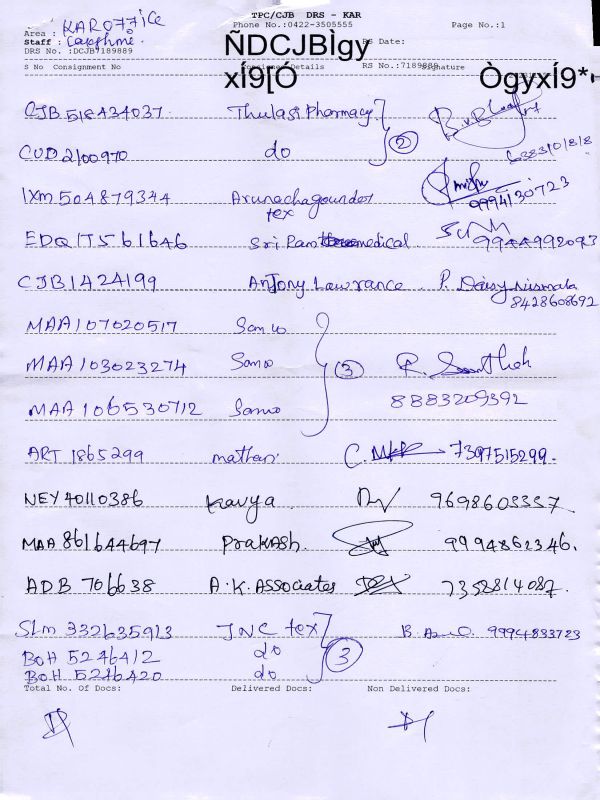 TPC/CJB DRS - KAR
KAR OFFICE
Phone No.:0422-3505555 Page No.:1
Area :
Staff :
DRS No. :DCJB7189889 RS Date:
ÑDCJBÌgy
S No Consignment No Consignee Details RS No.:7189889 Signature
xÍ9[Ó ÒgyxÍ9*
CJB 518434037 Thulasi Pharmacy
CUD 2100970 do 2
IXM 504879344 Arunachagounder tex 9994130723
EDQ 175 61646 Sri Ram medical 9944992093
CJB 1424199 Antony Lawrance P. Daisy nirmala
8428608692
MAA 107020517 Sanwo
MAA 103023274 Sanwo 3 R. Santhosh
MAA 106530712 Sanwo 8883209392
ART 1865299 mathan 7397515299.
NEY 40110386 Kavya 9698603357
MAA 861644697 Prakash 9994862346.
ADB 706638 A.K. Associates 7352814087.
SLM 332635913 JNC tex 9994833723
BOH 5246412 do 3
BOH 5246420 do
Total No. Of Docs: Delivered Docs: Non Delivered Docs: